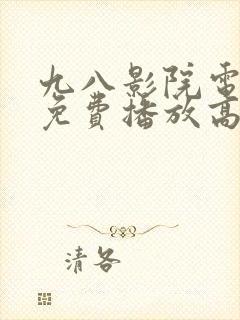 九八影院電
免費播放高
清各